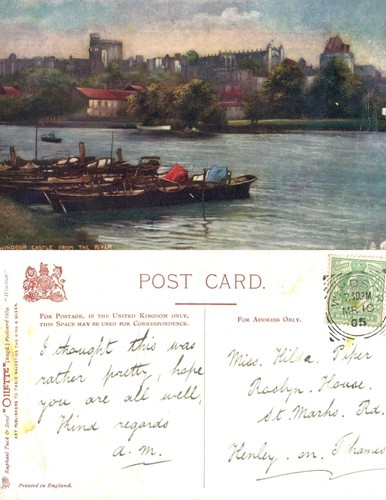 WINDSOR CASTLE FROM THE RIVER
POST CARD.
FOR POSTAGE, IN THE UNITED KINGDOM ONLY,
THIS SPACE MAY BE USED FOR CORRESPONDENCE.
FOR ADDRESS ONLY.
I thought this was
rather pretty, hope
you are all well,
Kind regards
A.M.
Miss. Hilda Piper
Roslyn. House.
St. Marks. Rd.
Henley. on. Thames
7.30PM
MR 10
05
Raphael Tuck & Sons' "OILETTE"
ART PUBLISHERS TO THEIR MAJESTIES THE KING & QUEEN.
Printed in England.